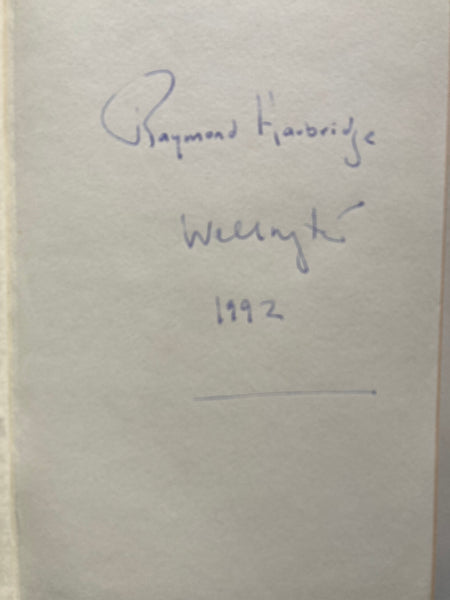 Raymond Harbridge
Wellington
1992